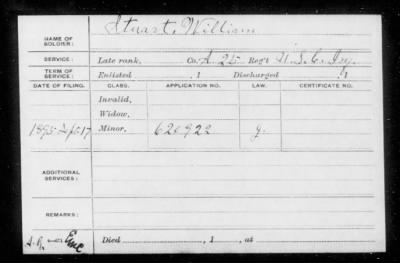 NAME OF SOLDIER: Stuart, William
SERVICE: Late rank, Co. A. 25 Reg't U.S.C. Inf.
TERM OF SERVICE: Enlisted , 1 Discharged , 1
DATE OF FILING. CLASS. APPLICATION NO. LAW. CERTIFICATE NO.
Invalid,
Widow,
1895 Sept 17 Minor, 620922 g.
ADDITIONAL SERVICES:
REMARKS:
Died , 1 , at